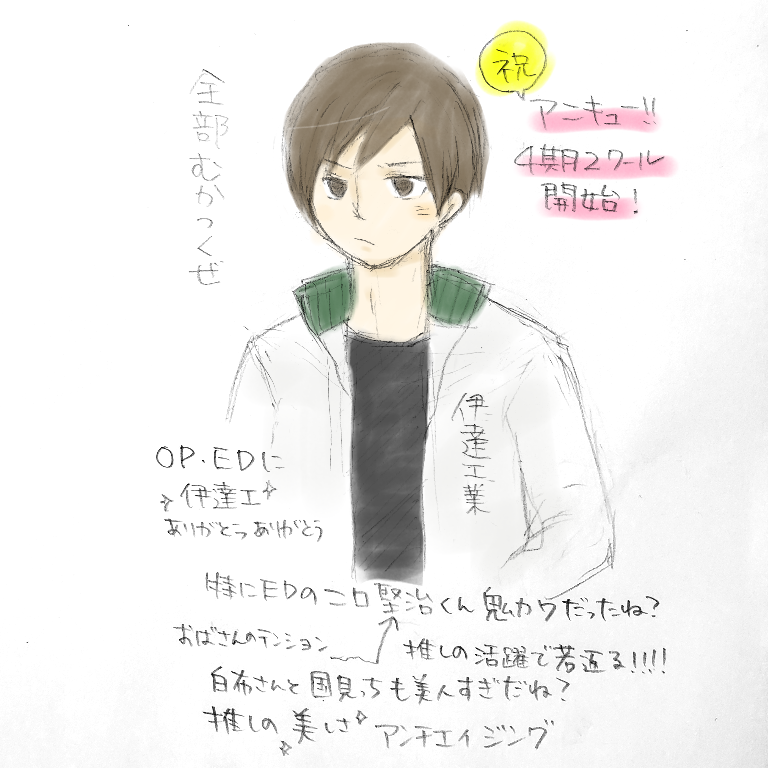 祝
アニキュー!!
4期2クール
開始!
全部むかつくぜ
伊達工業
OP・EDに
伊達工
ありがとうありがとう
特にEDの二口堅治くん鬼カワだったね?
おばさんのテンション
推しの活躍で若返る!!!!
白布さんと国見っちも美人すぎだね?
推しの美しさ
アンチエイジング